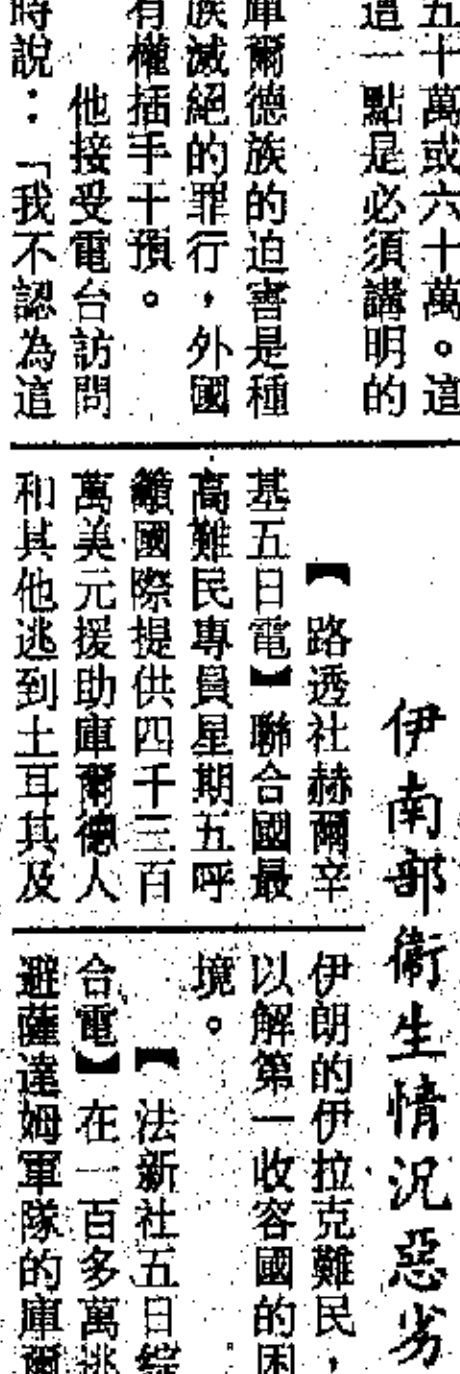 五十萬或六十萬。這
這一點是必須講明的
庫爾德族的迫害是種
族滅絕的罪行，外國
有權插手干預。
他接受電台訪問
時說：「我不認為這
伊南部衞生情況惡劣
【路透社赫爾辛
基五日電】聯合國最
高難民專員星期五呼
籲國際提供四千三百
萬美元援助庫爾德人
和其他逃到土耳其及
伊朗的伊拉克難民，
以解第一收容國的困
境。
【法新社五日綜
合電】在一百多萬逃
避薩達姆軍隊的庫爾